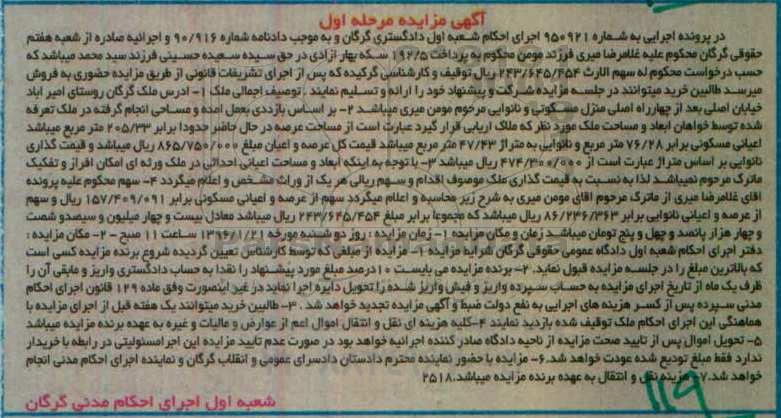 آگهی مزایده مرحله اول
در پرونده اجرایی به شماره ۹۵۰۹۲۱ اجرای احکام شعبه اول دادگستری گرگان و به موجب دادنامه شماره ۹۰/۹۱۶ و اجرائیه صادره از شعبه هفتم
حقوقی گرگان محکوم علیه غلامرضا میری فرزند مومن محکوم به پرداخت ۱۹۲/۵ سکه بهار آزادی در حق سیده سعیده حسینی فرزند سید محمد میباشد که
حسب درخواست محکوم له سهم الارث ۲۴۳/۶۴۵/۴۵۴ ریال توقیف و کارشناسی گردیده که پس از اجرای تشریفات قانونی از طریق مزایده حضوری به فروش
میرسد طالبین خرید میتوانند در جلسه مزایده شرکت و پیشنهاد خود را ارائه و تسلیم نمایند . توصیف اجمالی ملک ۱- آدرس ملک گرگان روستای امیر آباد
خیابان اصلی بعد از چهارراه اصلی منزل مسکونی و نانوایی مرحوم مومن میری میباشد ۲- بر اساس بازدیدی بعمل آمده و مساحی انجام گرفته در ملک تعرفه
شده توسط خواهان ابعاد و مساحت ملک مورد نظر که ملاک ارزیابی قرار گیرد عبارت است از مساحت عرصه در حال حاضر حدودا برابر ۲۰۵/۳۳ متر مربع میباشد
اعیانی مسکونی برابر ۷۶/۲۸ متر مربع و نانوایی به متراژ ۴۷/۴۳ متر مربع میباشد قیمت کل عرصه و اعیان مبلغ ۸۶۵/۷۵۰/۰۰۰ ریال میباشد و قیمت گذاری
نانوایی بر اساس متراژ عبارت است از ۴۷۴/۳۰۰/۰۰۰ ریال میباشد ۳- با توجه به اینکه ابعاد و مساحت اعیانی احداثی در ملک ورثه ای امکان افراز و تفکیک
ماترک مرحوم نمیباشد لذا به نسبت به قیمت گذاری ملک موصوف اقدام و سهم ریالی هر یک از وراث مشخص و اعلام میگردد ۴- سهم محکوم علیه پرونده
آقای غلامرضا میری از ماترک مرحوم آقای مومن میری به شرح زیر محاسبه و اعلام میگردد سهم از عرصه و اعیانی مسکونی برابر ۱۵۷/۴۰۹/۰۹۱ ریال و سهم
از عرصه و اعیانی نانوایی برابر ۸۶/۲۳۶/۳۶۳ ریال میباشد که مجموعا برابر مبلغ ۲۴۳/۶۴۵/۴۵۴ ریال میباشد معادل بیست و چهار میلیون و سیصدو شصت
و چهار هزار پانصد و چهل و پنج تومان میباشد زمان و مکان مزایده: ۱- زمان مزایده : روز دو شنبه مورخه ۱۳۹۶/۸/۲۱ ساعت ۱۱ صبح - ۲- مکان مزایده :
دفتر اجرای احکام شعبه اول دادگاه عمومی حقوقی گرگان شرایط مزایده ۱- مزایده از مبلغی که توسط کارشناس تعیین گردیده شروع برنده مزایده کسی است
که بالاترین مبلغ را در جلسه مزایده قبول نماید. ۲- برنده مزایده می بایست ۱۰ درصد مبلغ مورد پیشنهاد را نقدا به حساب دادگستری واریز و مابقی آن را
ظرف یک ماه از تاریخ اجرای مزایده به حساب سپرده واریز و فیش واریز شده را تحویل دایره اجرا نماید در غیر اینصورت وفق ماده ۱۲۹ قانون اجرای احکام
مدنی سپرده پس از کسر هزینه های اجرایی به نفع دولت ضبط و آگهی مزایده تجدید خواهد شد . ۳- طالبین خرید میتوانند یک هفته قبل از اجرای مزایده با
هماهنگی این اجرای احکام ملک توقیف شده بازدید نمایند ۴-کلیه هزینه ای نقل و انتقال اموال اعم از عوارض و مالیات و غیره به عهده برنده مزایده میباشد
۵- تحویل اموال پس از تایید صحت مزایده از ناحیه دادگاه صادر کننده اجرائیه خواهد بود در صورت عدم تایید مزایده این اجرا مسئولیتی در رابطه با خریدار
ندارد فقط مبلغ تودیع شده عودت خواهد شد.۶- مزایده با حضور نماینده محترم دادستان دادسرای عمومی و انقلاب گرگان و نماینده اجرای احکام مدنی انجام
خواهد شد.۷- هزینه نقل و انتقال به عهده برنده مزایده میباشد.۲۵۱۸
شعبه اول اجرای احکام مدنی گرگان